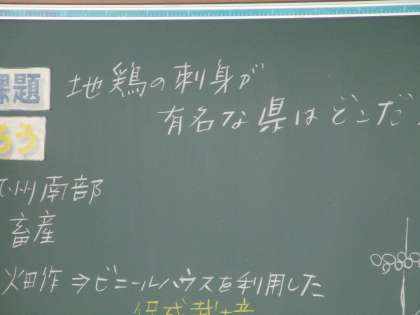 課題
地鶏の刺身が
有名な県はどこだ
ろう
九州南部
畜産
畑作⇒ビニールハウスを利用した
促成栽培